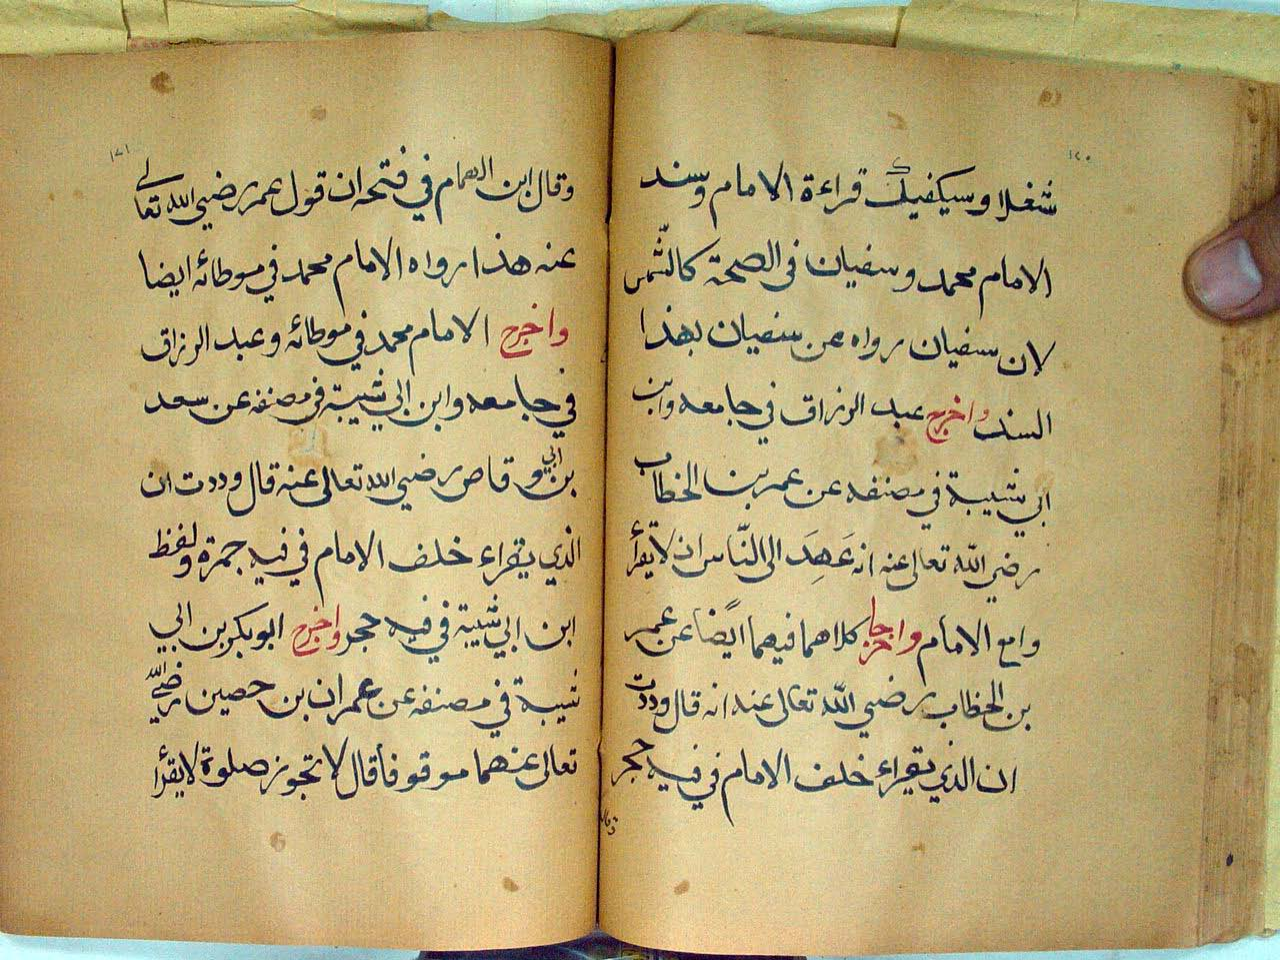 ١٢٠
شغلا وسيكفيك قراءة الامام وسند
الامام محمد وسفيان فى الصحة كالشّمس
لان سفيان رواه عن سفيان بهذا
السند واخرج عبد الرزاق في جامعه وابن
ابي شيبة في مصنفه عن عمر بن الخطاب
رضي اللّه تعالى عنه انه عَهِدَ الى النّاس ان لا يقرأ
وامع الامام واخرجا كلاهما فيهما ايضًا عن عمر
بن الخطاب رضي اللّه تعالى عنه انه قال وددت
ان الذي يقراء خلف الامام في فيه حجر
وقال
١٢١
وقال ابن الهمام في فتحه ان قول عمر رضي الله تعالى
عنه هذا رواه الامام محمد في موطائه ايضا
واخرج الامام محمد في موطائه وعبد الرزاق
في جامعه وابن ابي شيبة في مصنفه عن سعد
بن ابي وقاص رضي الله تعالى عنه قال وددت ان
الذي يقراء خلف الامام في فيه جمرة ولفظ
ابن ابي شيبة في فيه حجر واخرج ابو بكر بن ابي
شيبة في مصنفه عن عمران بن حصين رضي اللّه
تعالى عنهما موقوفا قال لا تجوز صلوة لا يقرأ